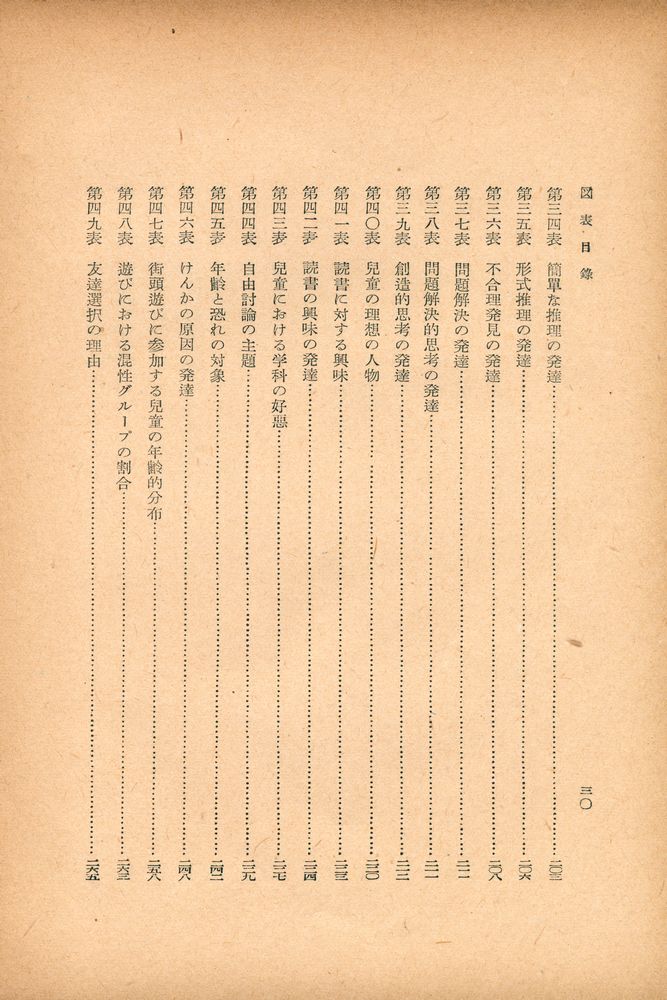 図表目錄
三〇
第三四表 簡單な推理の発達……二〇三
第三五表 形式推理の発達……二〇六
第三六表 不合理発見の発達……二〇八
第三七表 問題解決の発達……二一一
第三八表 問題解決的思考の発達……二一一
第三九表 創造的思考の発達……二一二
第四〇表 兒童の理想の人物……二二〇
第四一表 読書に対する興味……二二三
第四二表 読書の興味の発達……二二四
第四三表 兒童における学科の好惡……二二七
第四四表 自由討論の主題……二二九
第四五表 年齡と恐れの対象……二四二
第四六表 けんかの原因の発達……二四八
第四七表 街頭遊びに参加する兒童の年齡的分布……二五八
第四八表 遊びにおける混性グループの割合……二六三
第四九表 友達選択の理由……二六五